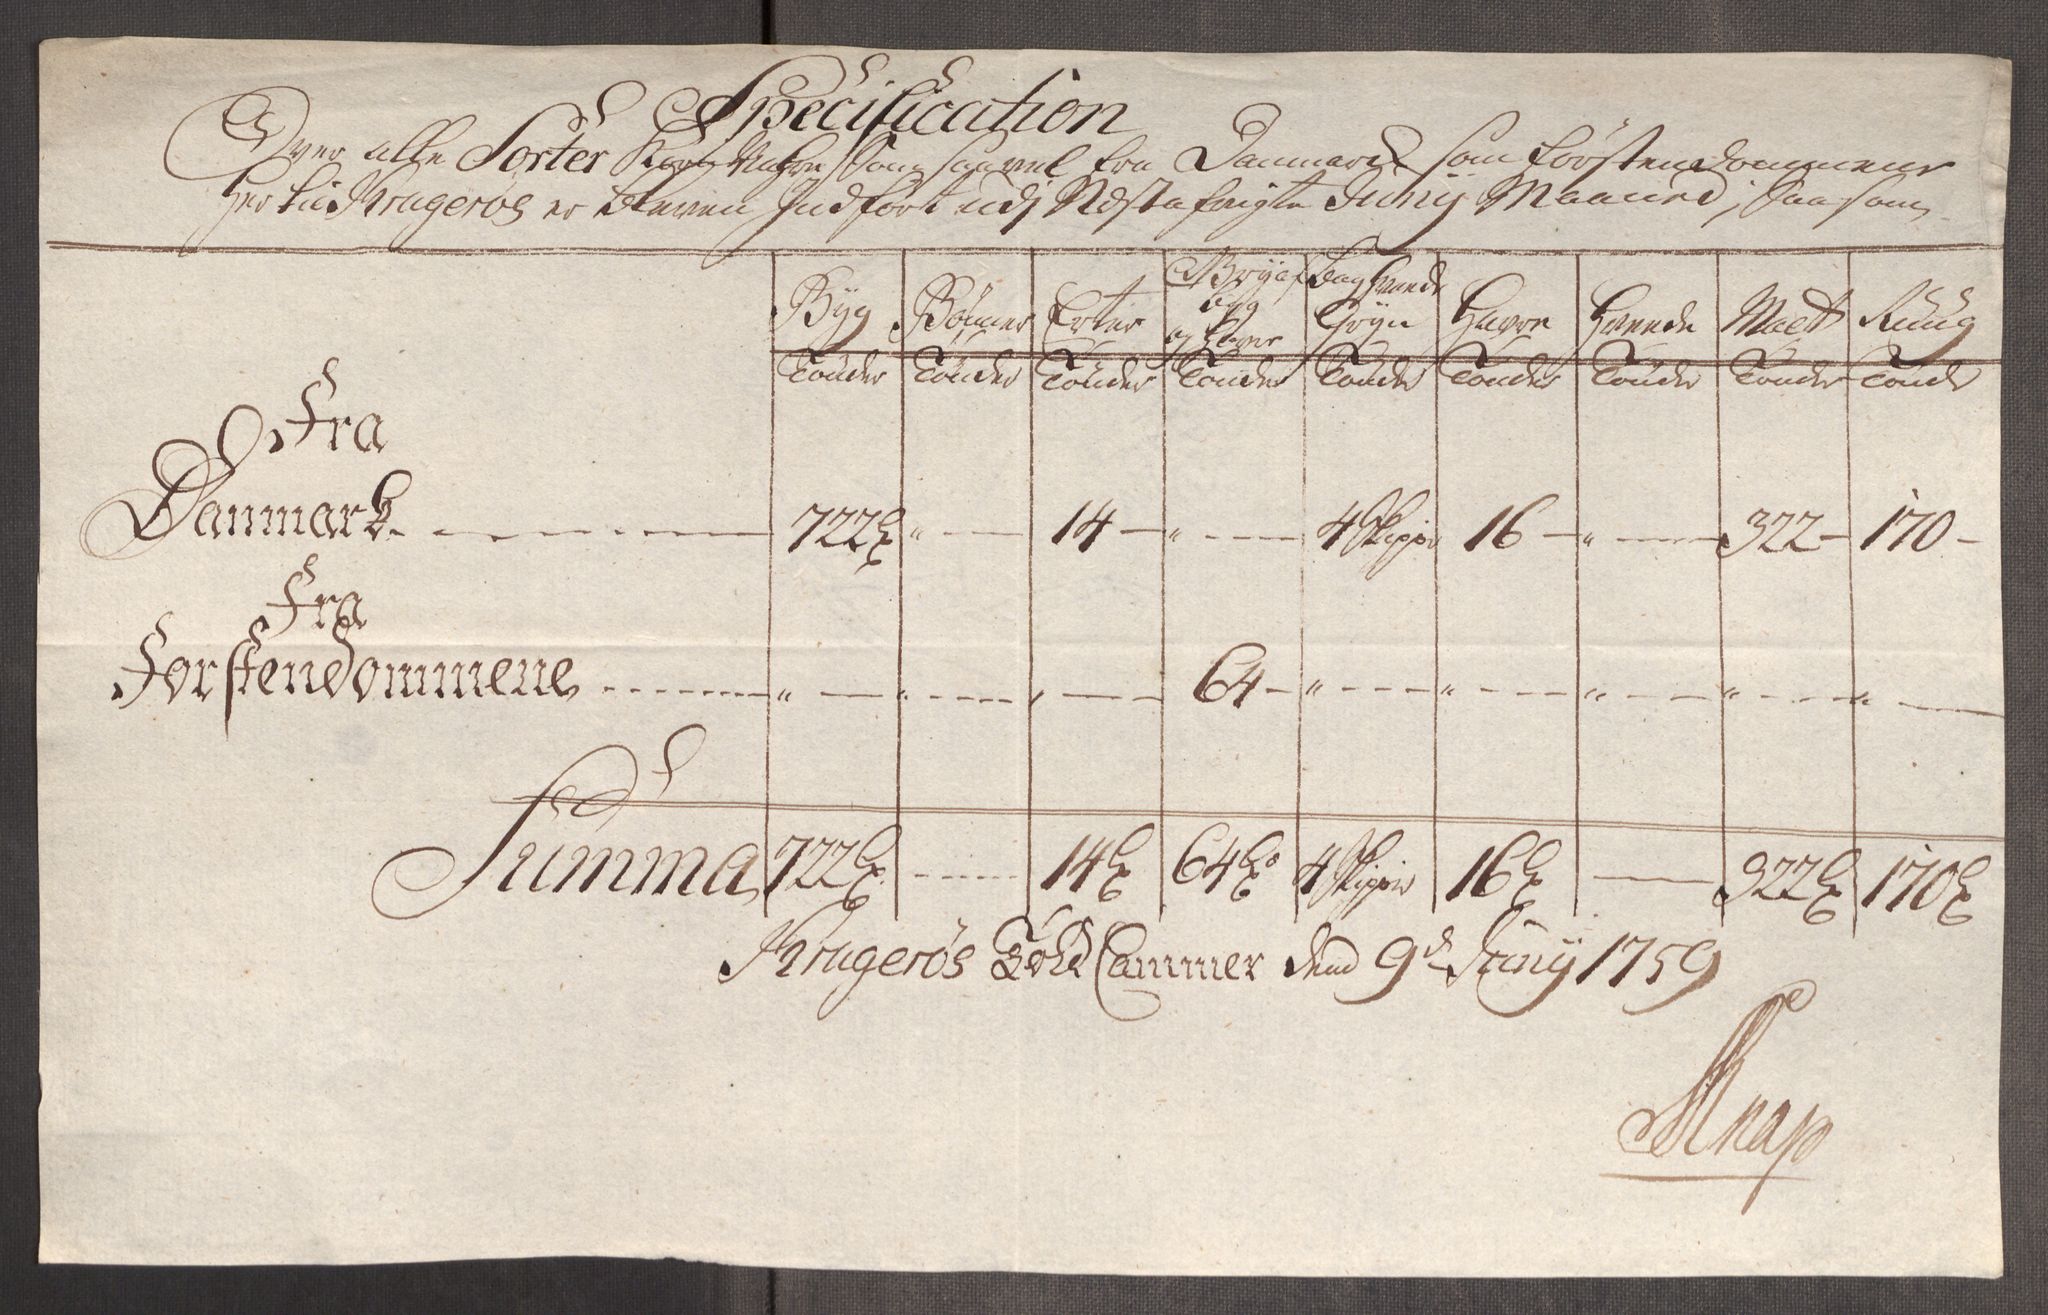 Specification
Over alle Sorter Korn Vahre Som saavel fra Danmarck som förstendommene
her til Kragerøe er bleven Indfört udj Næstafvigte Junij Maaned, Saasom
Byg Bönner Erter og Haver Boghvede Gryn Havre Hvede Malt Ruug
Tönder Tönder Tönder Tönder Tönder Tönder Tönder Tönder Tönder
Fra
Danmark 722 " 14 " 4 Skipper 16 " 322 170
Fra
Forstendommene " " " 64 " " " " "
Summa 722 14 64 4 Skipper 16 322 170
Kragerøes Told Cammer dend 9d Junij 1759
Knap